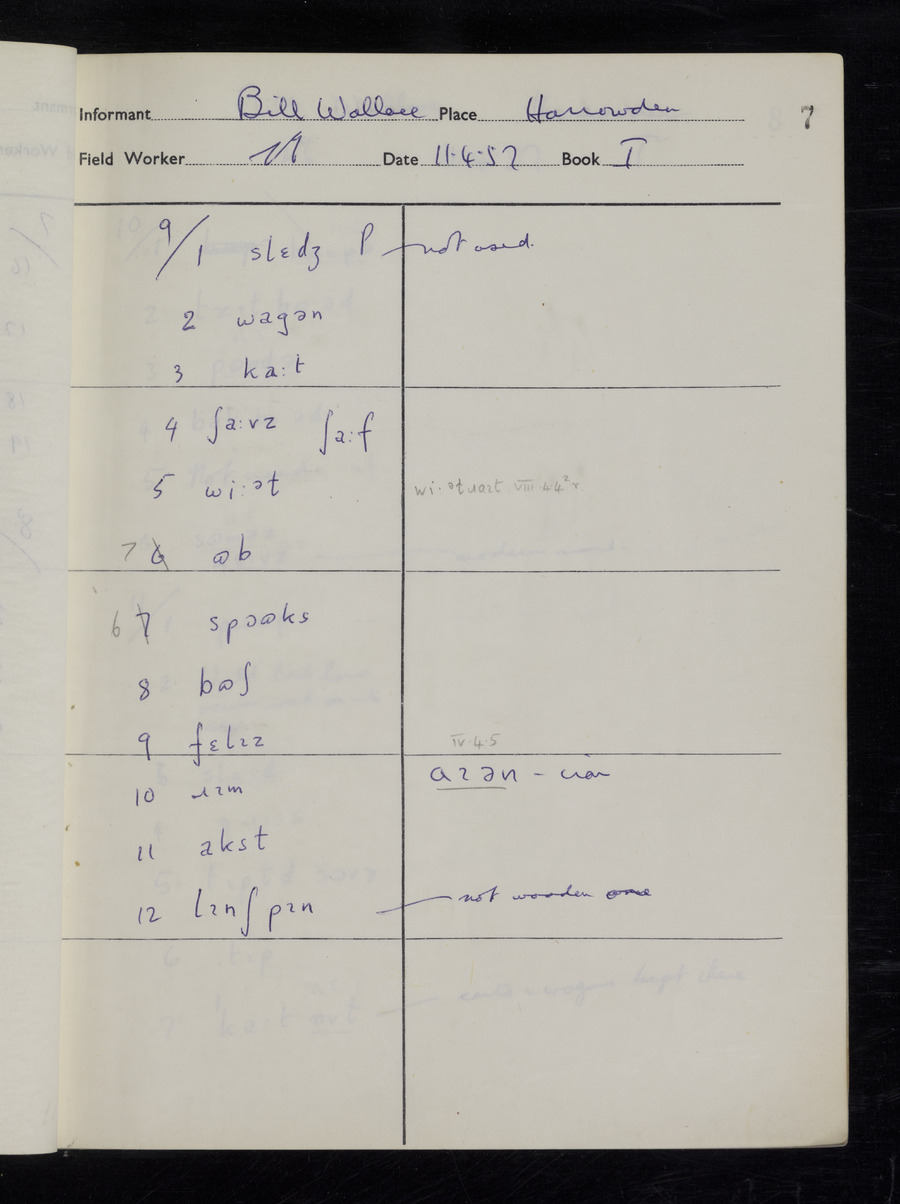 Informant Bill Wallace Place Harrowden 7
Field Worker Date 11·4·57 Book I
9/1 slɛdʒ P — not used.
2 wagən
3 ka:t
4 ʃa:vz ʃa:f
5 wi:ət VIII·4·4
7 6 ɷb
6 7 spɔɷks
8 bɷʃ
9 fɛlɪz IV·4·5
10 ɹɪm aɪən – iron
11 akst
12 lɪnʃpɪn — not wooden one